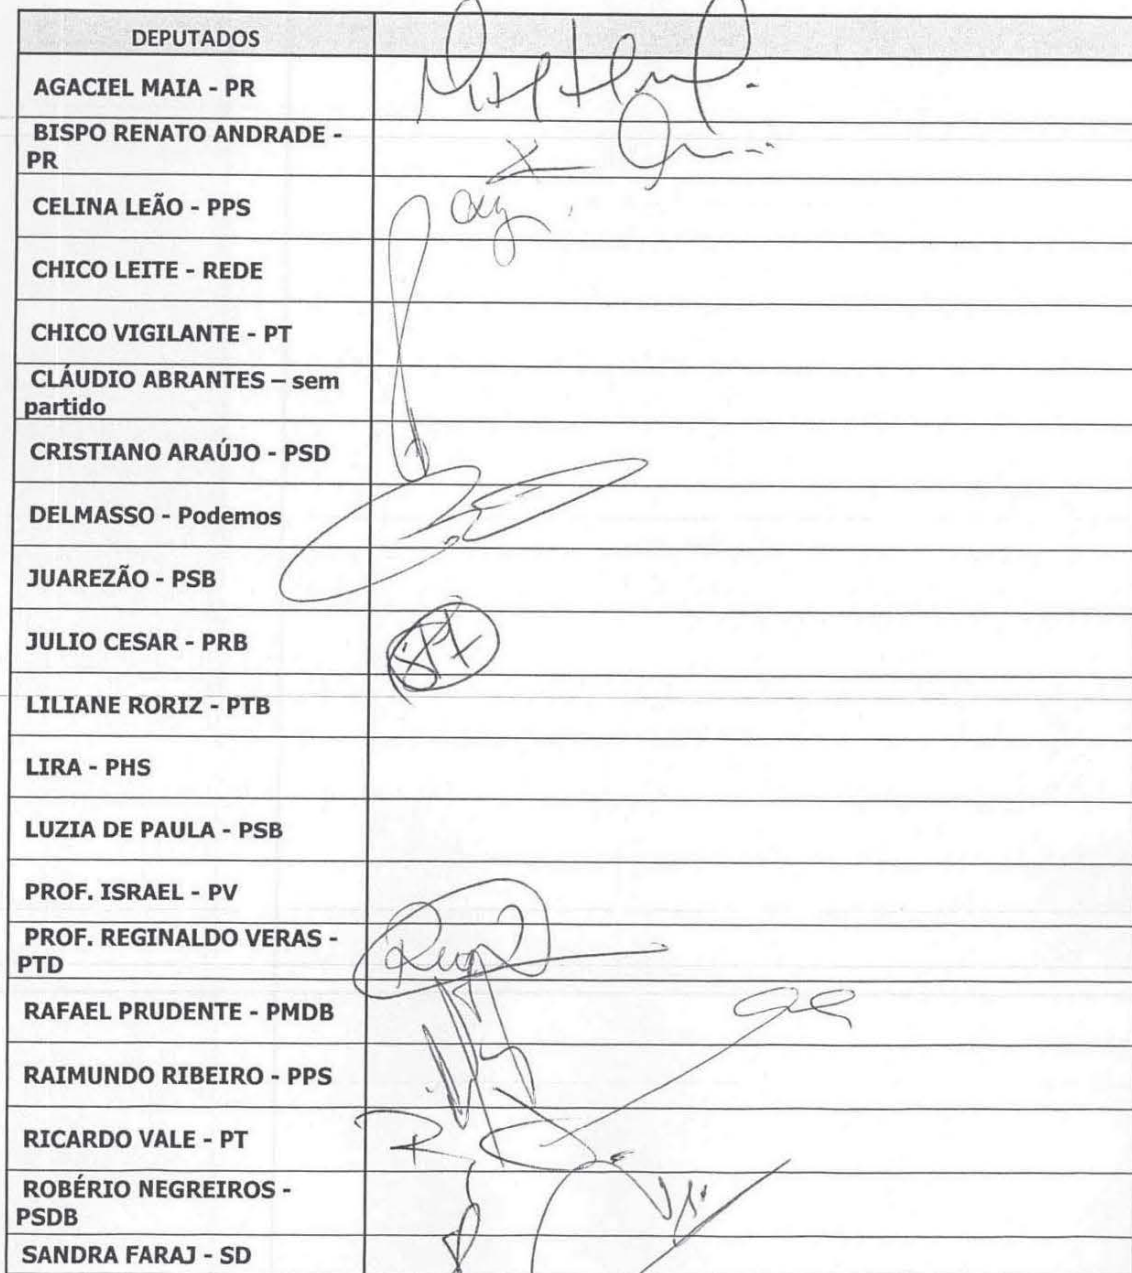 DEPUTADOS
AGACIEL MAIA - PR
BISPO RENATO ANDRADE -
PR
CELINA LEÃO - PPS
CHICO LEITE - REDE
CHICO VIGILANTE - PT
CLÁUDIO ABRANTES – sem
partido
CRISTIANO ARAÚJO - PSD
DELMASSO - Podemos
JUAREZÃO - PSB
JULIO CESAR - PRB
LILIANE RORIZ - PTB
LIRA - PHS
LUZIA DE PAULA - PSB
PROF. ISRAEL - PV
PROF. REGINALDO VERAS -
PTD
RAFAEL PRUDENTE - PMDB
RAIMUNDO RIBEIRO - PPS
RICARDO VALE - PT
ROBÉRIO NEGREIROS -
PSDB
SANDRA FARAJ - SD